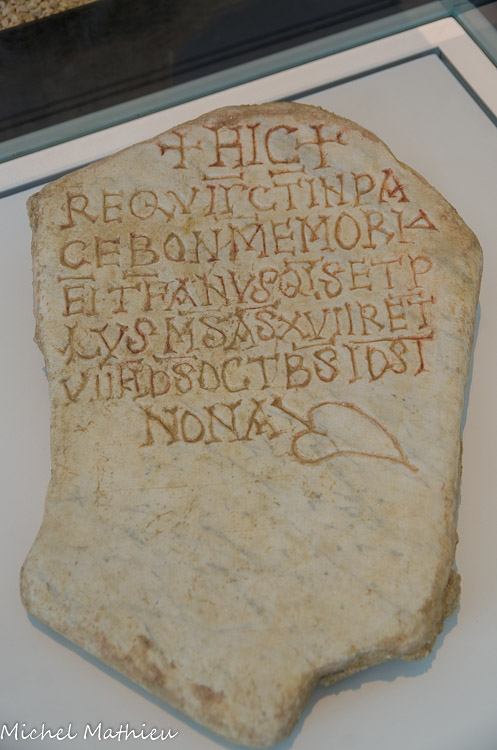 + HIC +
REQVIICTINPA
CEBONMEMORIA
EITFANVSQISETP
LVSMSASXVIIRET
VIIKDSOCTBSIDST
NONA
Michel Mathieu